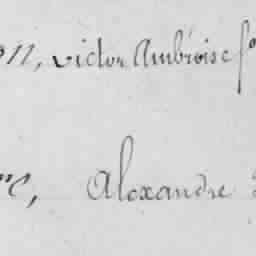 on, victor Ambroise
c, Aloxandre